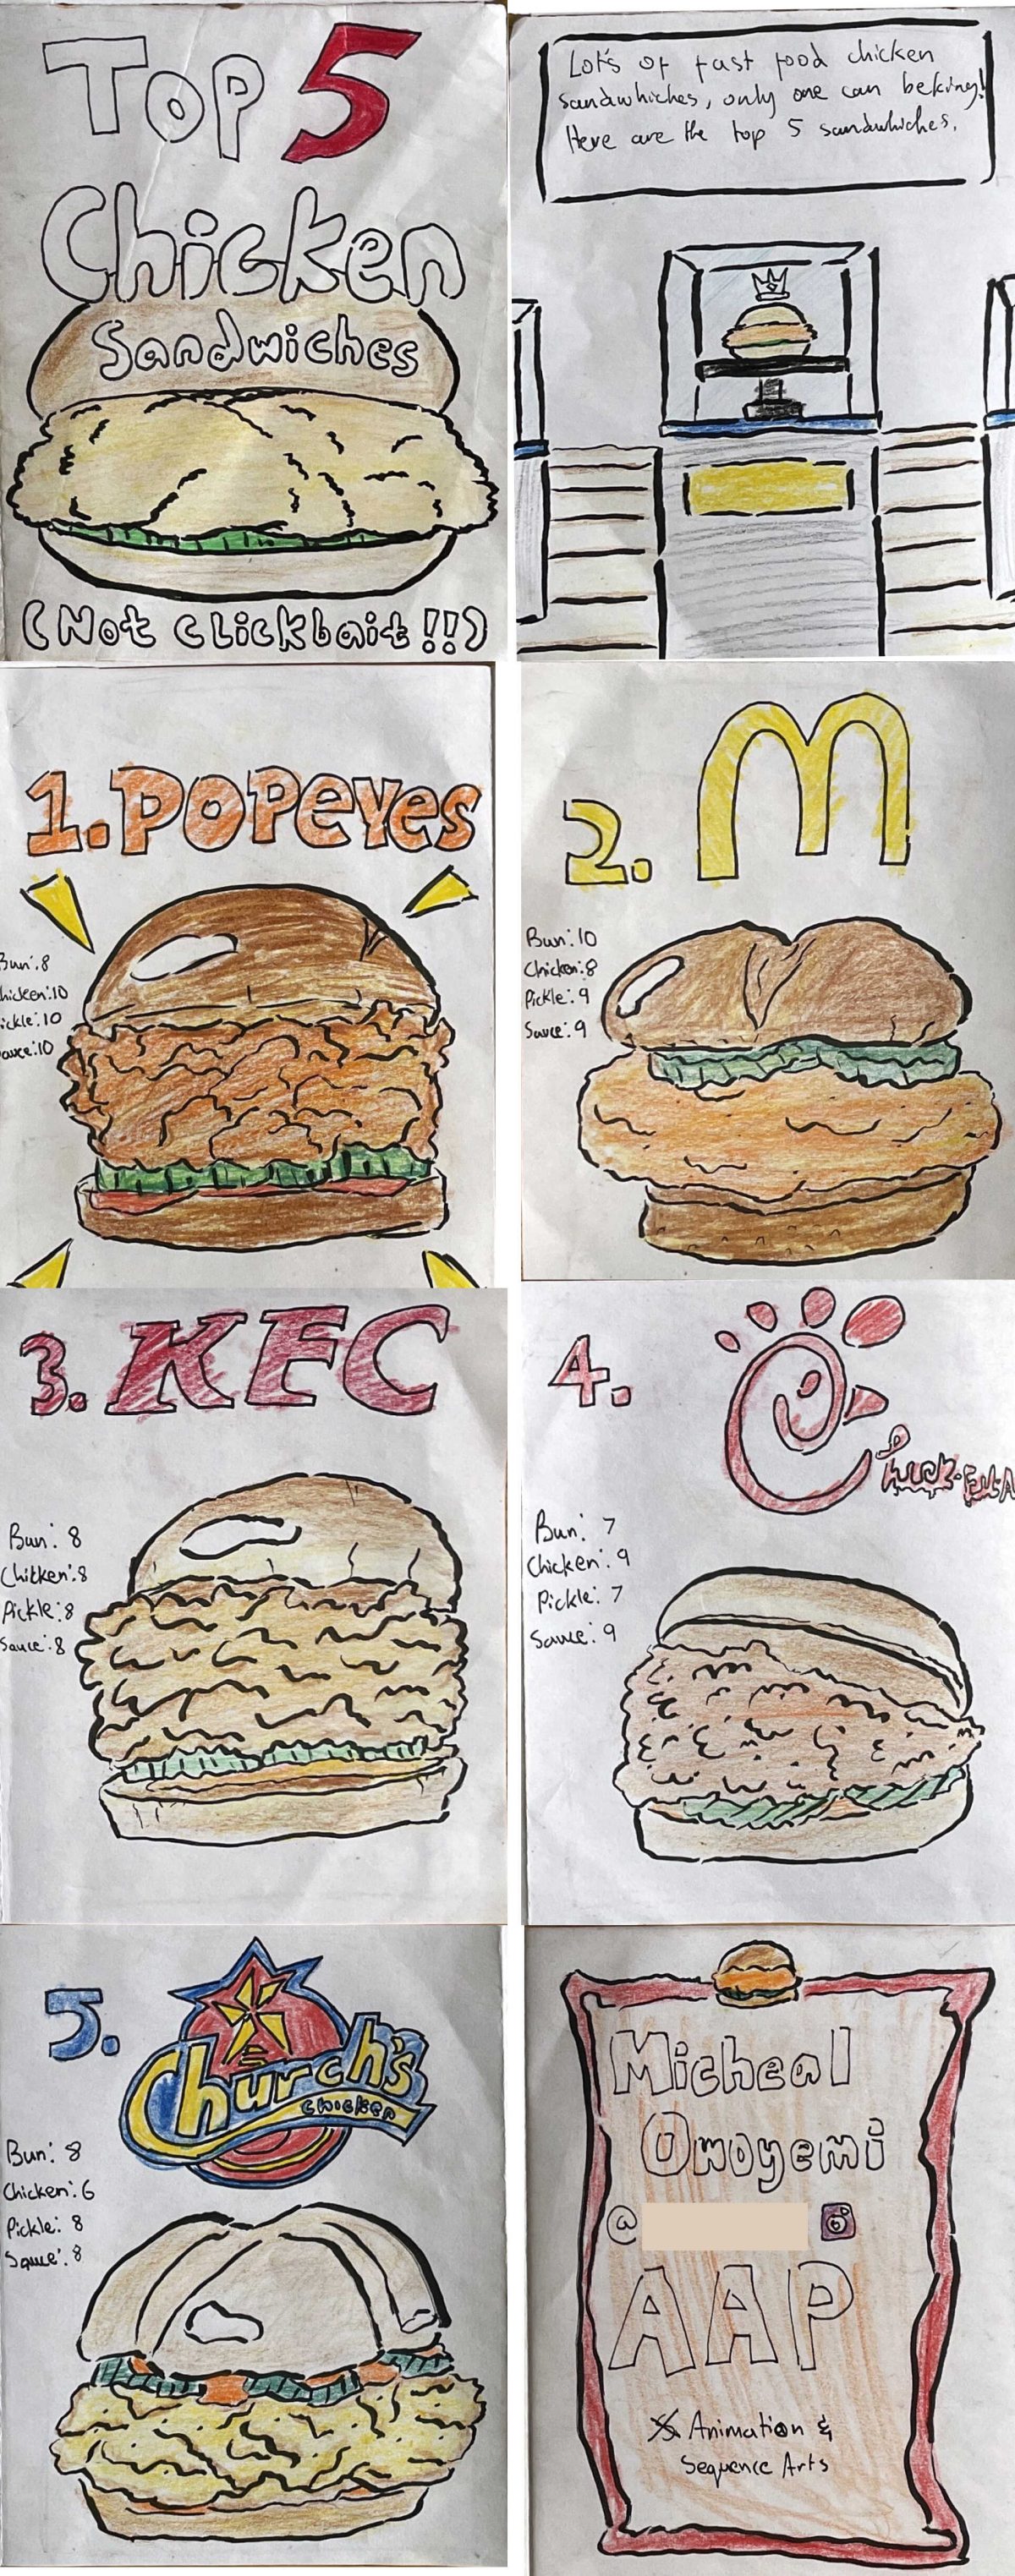 Top 5
Chicken
Sandwiches
(Not Clickbait!!)
Lot's of fast food chicken
sandwhiches, only one can be king!
Here are the top 5 sandwhiches.
1. POPEYES
Bun: 8
hicken: 10
ickle: 10
auce: 10
2. M
Bun: 10
Chicken: 8
Pickle: 9
Sauce: 9
3. KFC
Bun: 8
Chicken: 8
Pickle: 8
Sauce: 8
4.
Bun: 7
Chicken: 9
Pickle: 7
Sauce: 9
5. Church's
Chicken
Bun: 8
Chicken: 6
Pickle: 8
Sauce: 8
Micheal
Owoyemi
@
AAP
Animation &
Sequence Arts